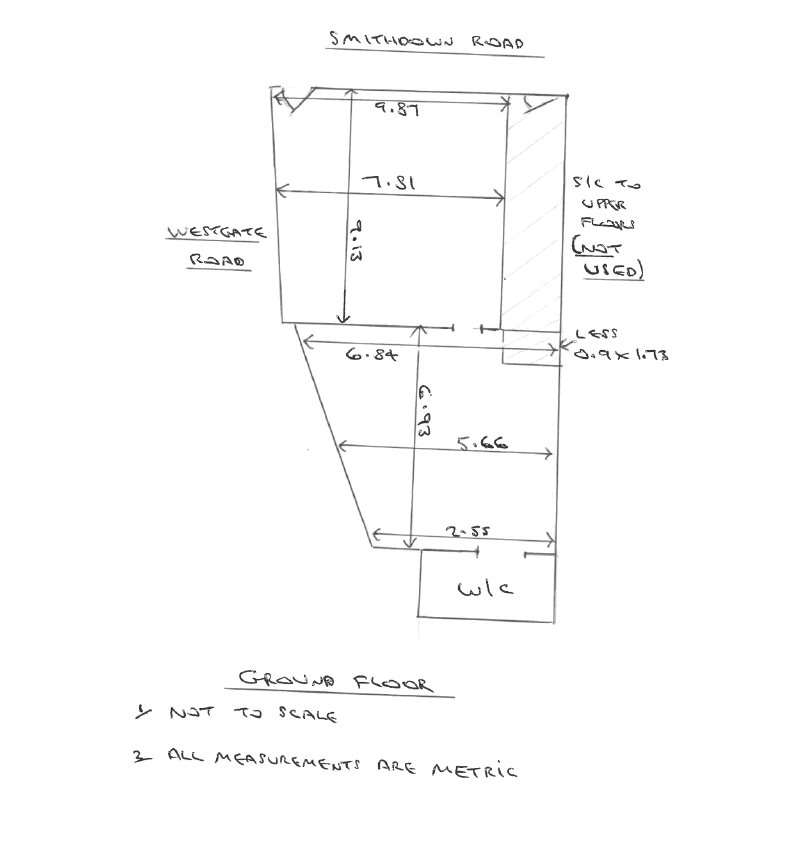 SMITHDOWN ROAD
9.87
7.81
7.13
S/C TO
UPPER
FLOORS
(NOT
USED)
WESTGATE
ROAD
LESS
0.9 x 1.73
6.84
6.93
5.66
2.55
W/C
GROUND FLOOR
1/ NOT TO SCALE
2 ALL MEASUREMENTS ARE METRIC